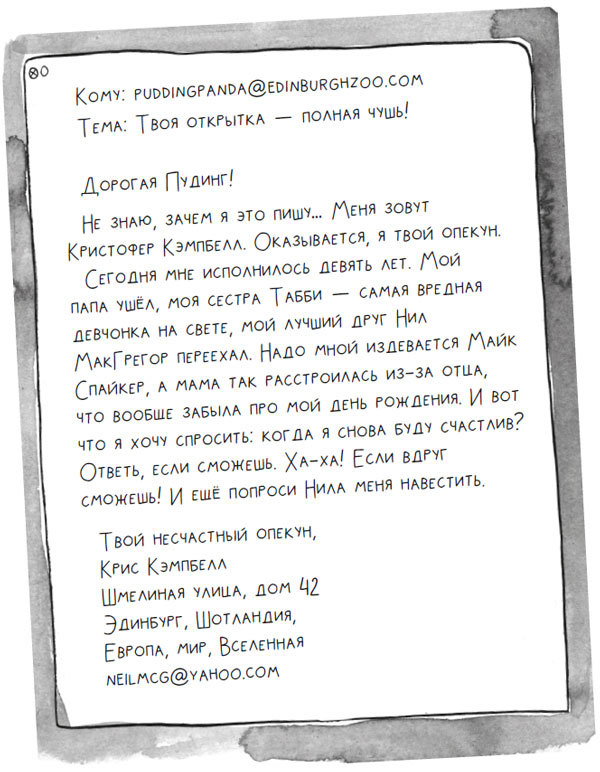 Кому: puddingpanda@edinburghzoo.com
Тема: Твоя открытка — полная чушь!
Дорогая Пудинг!
Не знаю, зачем я это пишу... Меня зовут
Кристофер Кэмпбелл. Оказывается, я твой опекун.
Сегодня мне исполнилось девять лет. Мой
папа ушёл, моя сестра Табби — самая вредная
девчонка на свете, мой лучший друг Нил
МакГрегор переехал. Надо мной издевается Майк
Спайкер, а мама так расстроилась из-за отца,
что вообще забыла про мой день рождения. И вот
что я хочу спросить: когда я снова буду счастлив?
Ответь, если сможешь. Ха-ха! Если вдруг
сможешь! И ещё попроси Нила меня навестить.
Твой несчастный опекун,
Крис Кэмпбелл
Шмелиная улица, дом 42
Эдинбург, Шотландия,
Европа, мир, Вселенная
neilmcg@yahoo.com